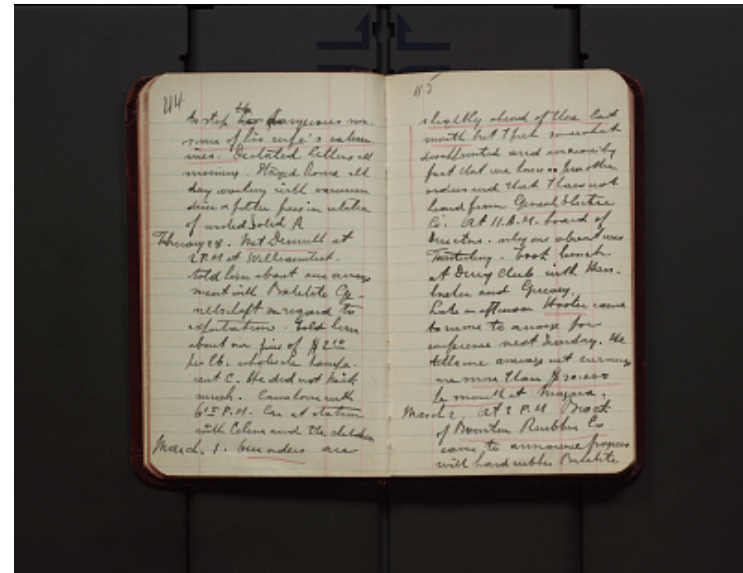 44
to stop the dangerous
of his wife's
Dictated letters all
morning. Stayed home all
day working with vacuum
in relation
of molded Solid A
February 28. Met Demuth at
2 P.M. at William street.
told him about our arrange
ment with Bakelite Ge-
sellschaft in regard to
exportation. Told him
about our price of $2.00
per lb. wholesale transpa-
rent C. He did not kick
much. Came home with
6 P.M. Car at station
with Celine and the children
March. 1. Our orders are
45
slightly ahead of those last
month but I feel somewhat
and uneasy by
fact that we have no further
orders and that I have not
heard from General Electric
Co. At 11 A.M. board of
Directors. only one absent was
took lunch
at Drug Club with Has-
slacher and
Late in afternoon came
to me to arrange for
conference next Tuesday. He
tells me
me more than
be month at Niagara.
March 2. At 2 P.M.
of Boonton Rubber Co
came to announce progress
with hard rubber Bakelite